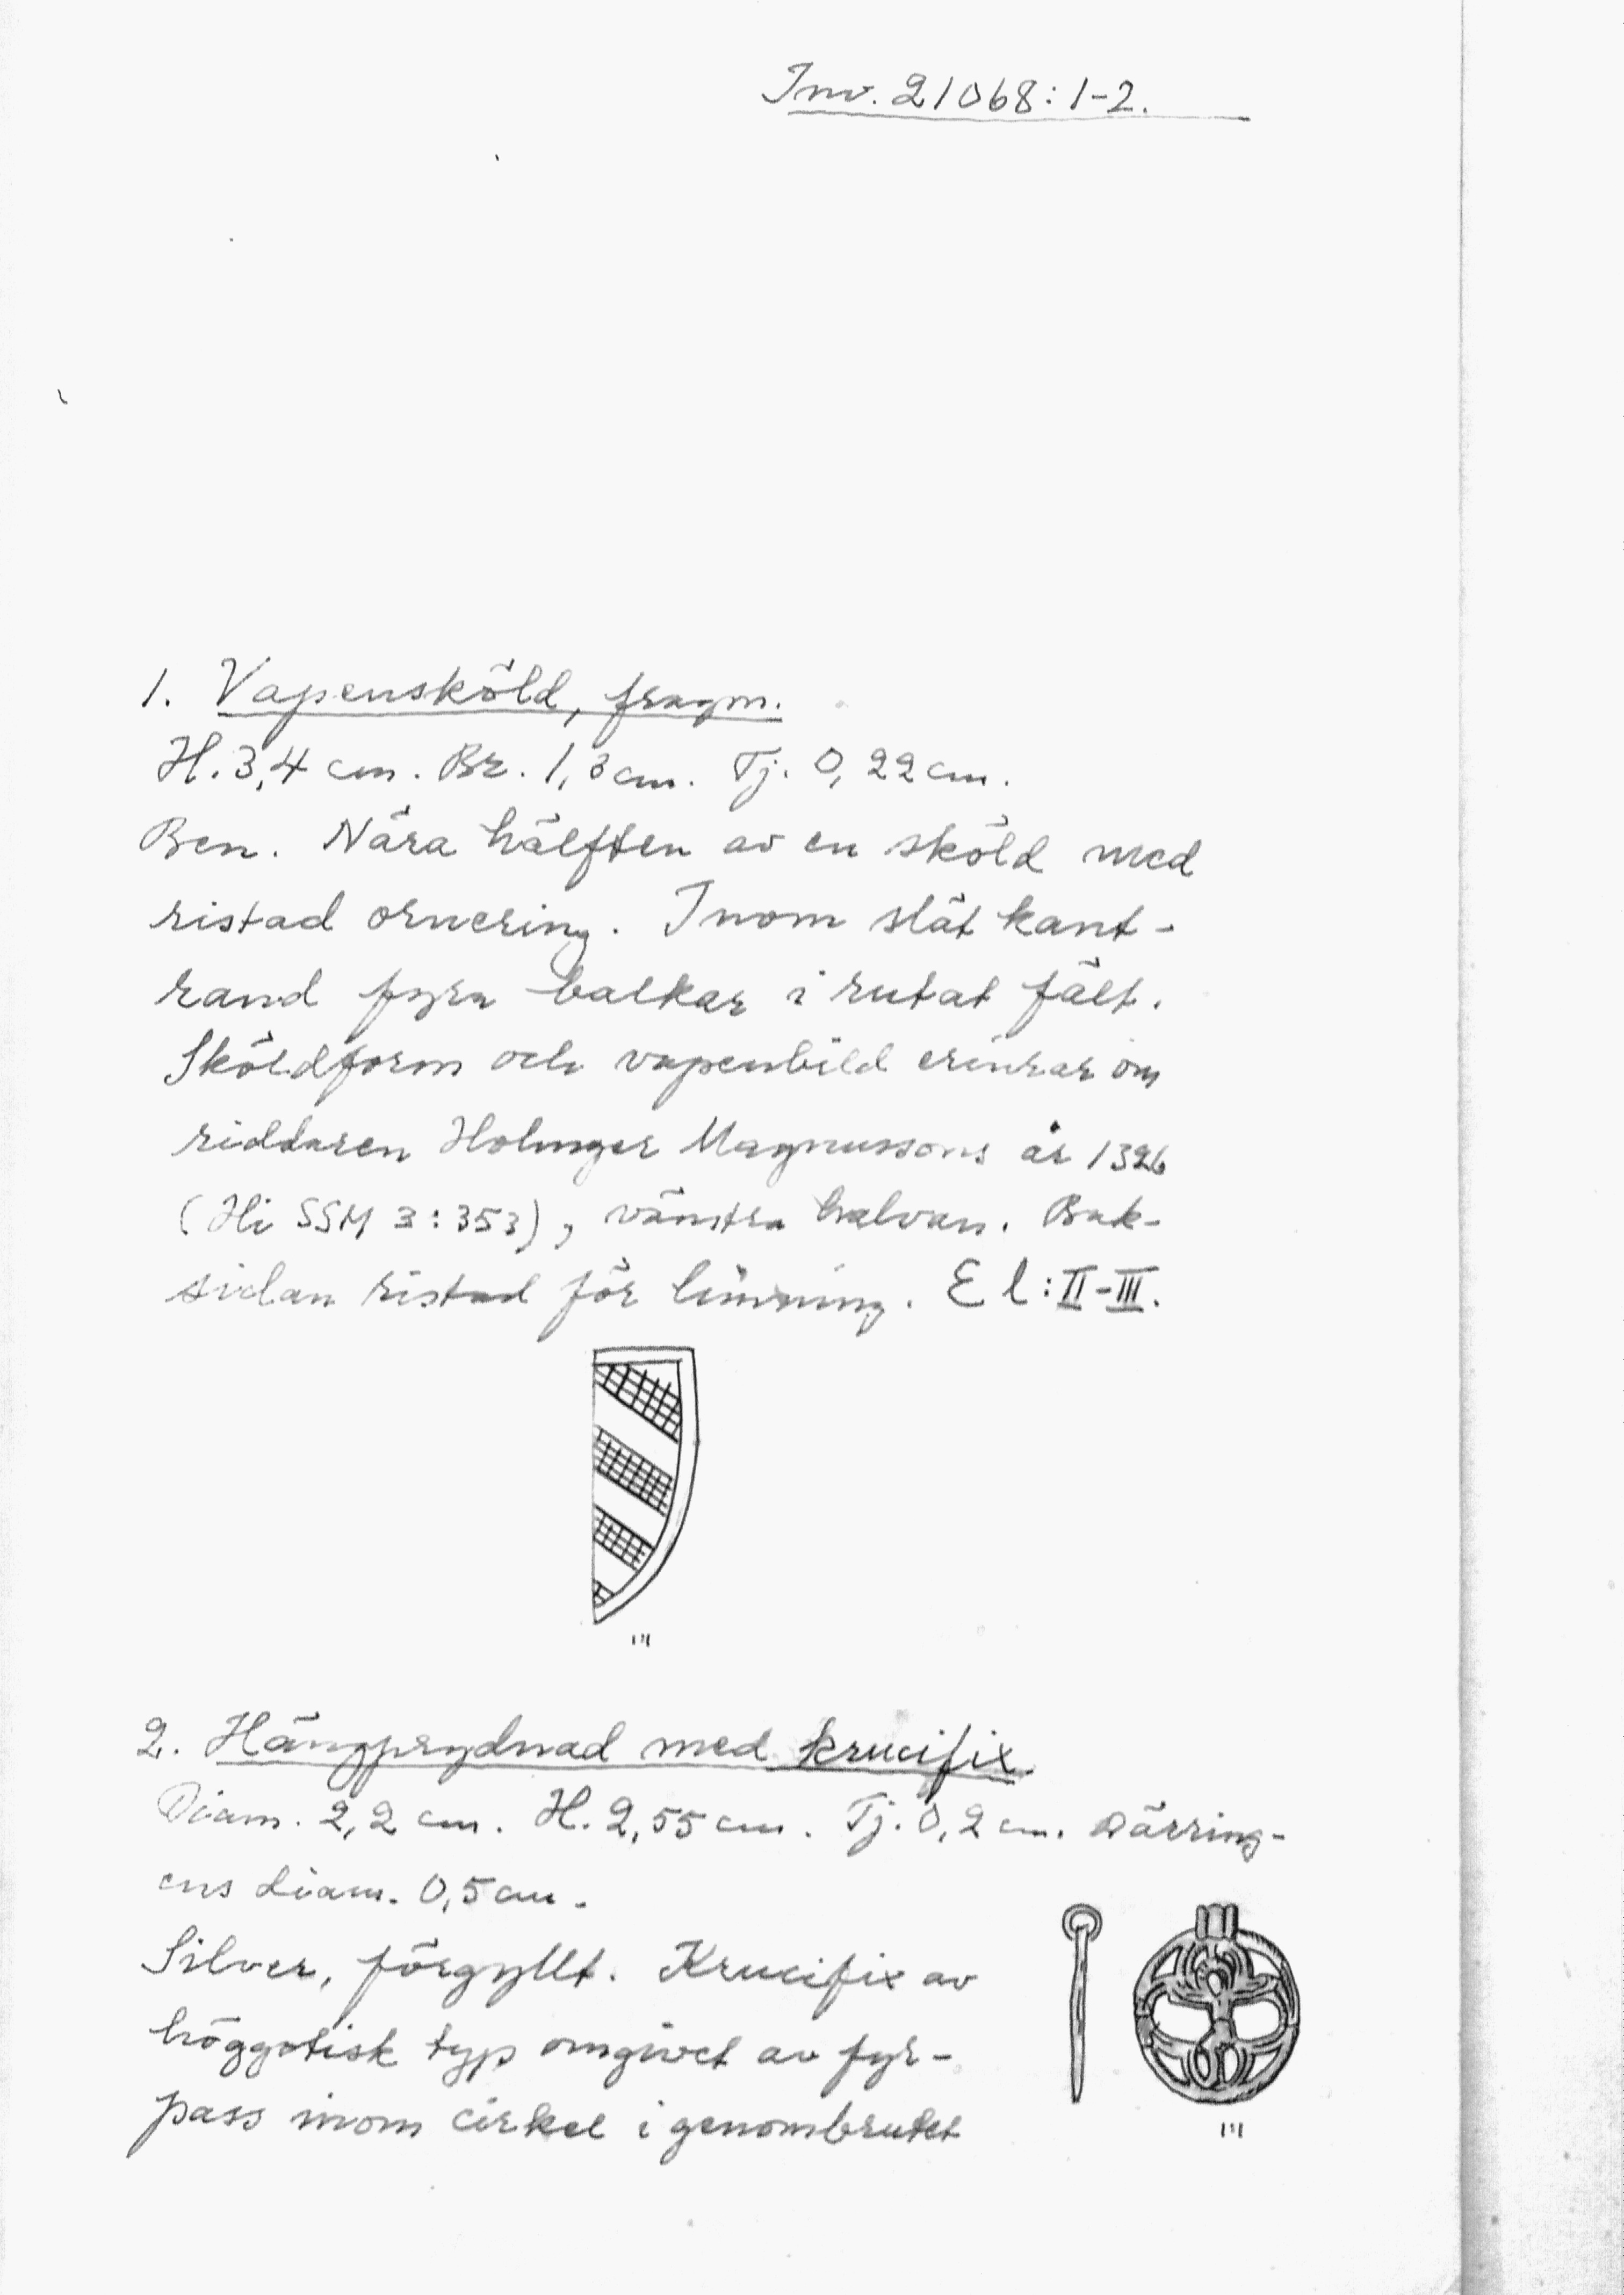 Inv. 21068:1-2.
1. Vapensköld, fragm.
H. 3,4 cm. Br. 1,3 cm. Tj. 0,22 cm.
Ben. Nära hälften av en sköld med
ristad ornering. Inom slät kant-
rand fyra balkar i rutat fält.
Sköldform och vapenbild erinrar om
riddaren Holmger Magnussons år 1326
(Hi SSM 3:353), vänstra halvan. Bak-
sidan ristad för limning. E l:II-III.
1:1
2. Hängprydnad med krucifix.
Diam. 2,2 cm. H. 2,55 cm. Tj. 0,2 cm. Bärring-
ens diam. 0,5 cm.
Silver, förgyllt. Krucifix av
höggotisk typ omgivet av fyr-
pass inom cirkel i genombrutet
1:1